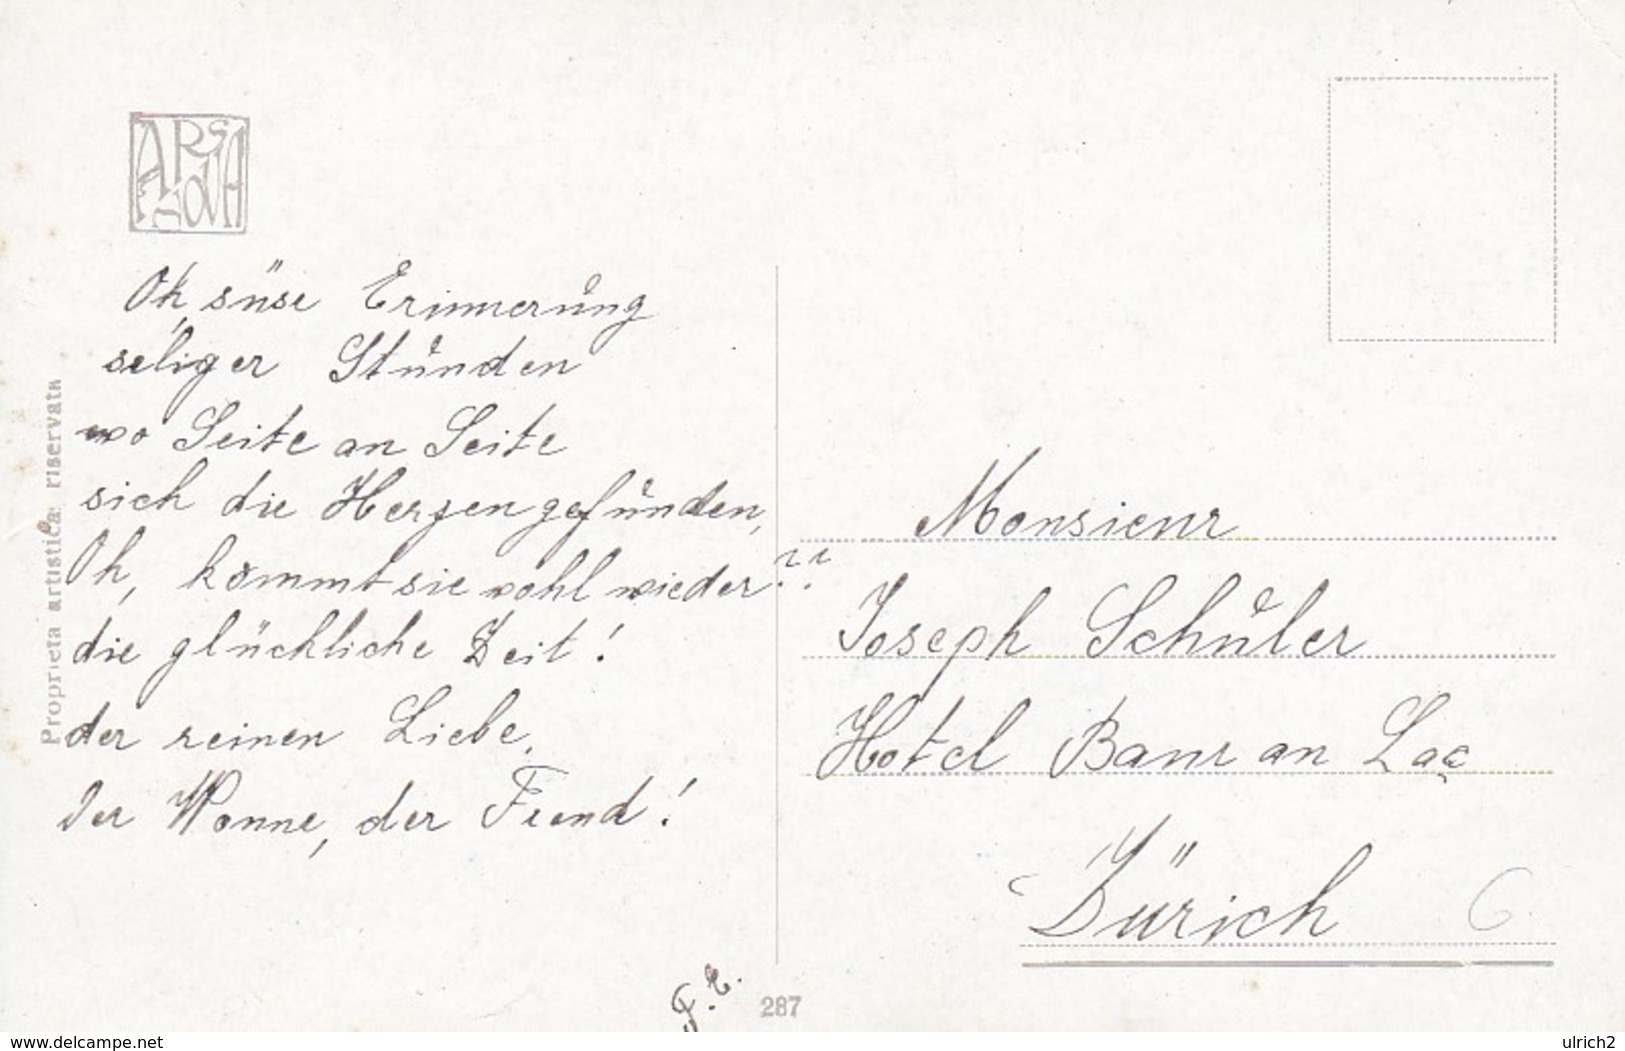 ARS NOVA
Oh süse Erinnerung
seliger Stunden
wo Seite an Seite
sich die Herzen gefunden,
Oh, kommt sie wohl wieder??
die glückliche Zeit!
der reinen Liebe,
der Wonne, der Freud!
Proprieta artistica riservata
Monsieur
Joseph Schuler
Hotel Baur an Lac
Zürich
287
www.delcampe.net
ulrich2